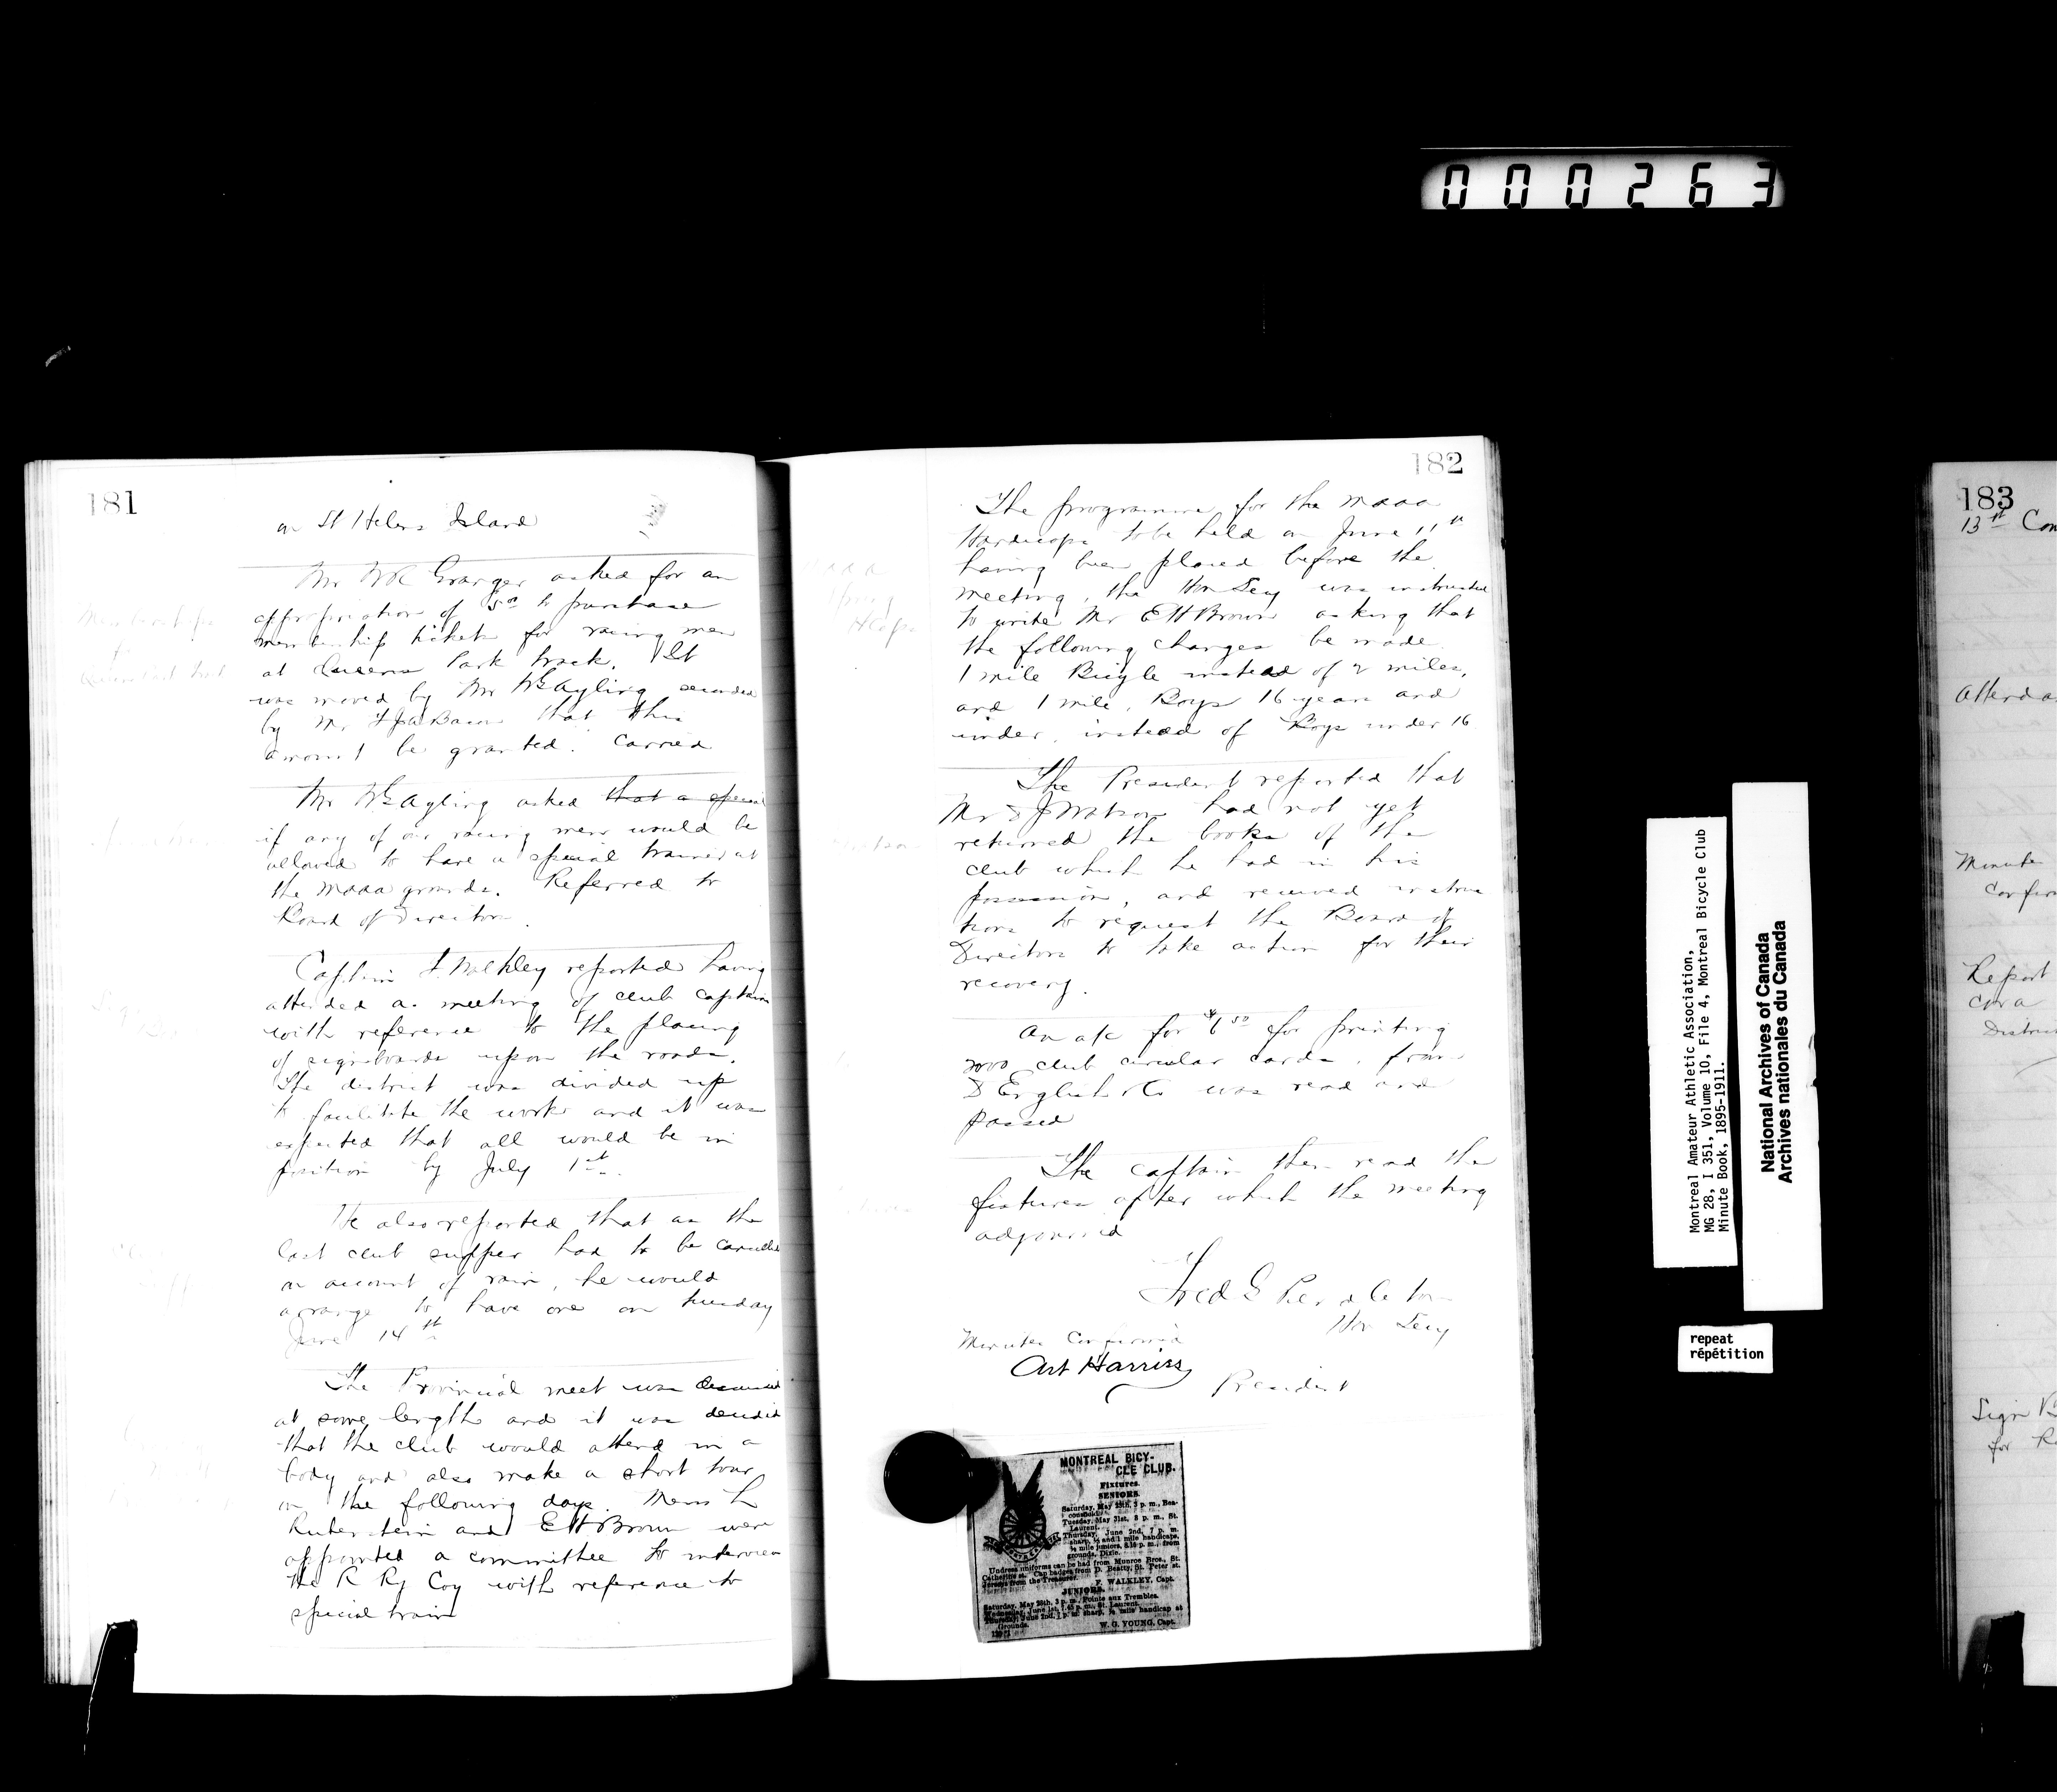 000263
181
on St Helens Island
Mr WR Granger asked for an
appropriation of 5.00 to purchase
membership tickets for racing men
at Queens Park track. It
was moved by Mr WG Ayling seconded
by Mr that this
amount be granted. Carried
Mr WG Ayling asked that a special
if any of our racing men would be
allowed to have a special trainer at
the MAAA grounds. Referred to
Board of Directors.
Captain F. Walkley reported having
attended a meeting of club captains
with reference to the placing
of signboards upon the roads.
The district was divided up
to facilitate the work and it was
expected that all would be in
position by July 1st.
He also reported that as the
last club supper had to be cancelled
on account of rain, he would
arrange to have one on Tuesday
June 14th
The Provincial meet was discussed
at some length and it was decided
that the club would attend in a
body and also make a short tour
on the following days. Messrs L
Rubenstein and EH Brown were
appointed a committee to interview
the R Ry Coy with reference to
special train
182
The programme for the MAAA
Handicaps to be held on June 11th
having been placed before the
meeting, the Hon Secy was instructed
to write Mr EH Brown asking that
the following changes be made
1 mile Bicycle instead of 2 miles,
and 1 mile, Boys 16 years and
under, instead of Boys under 16
The President reported that
Mr Watson had not yet
returned the books of the
club which he had in his
possession, and received instruc
tions to request the Board of
Directors to take action for their
recovery.
An a/c for $6.50 for printing
club circular cards, from
D English & Co was read and
passed
The captain then read the
fixtures after which the meeting
adjourned
Fred G Pendleton
Hon Secy
Minutes Confirmed
Art Harriss
President
MONTREAL BICY-
CLE CLUB.
Fixtures.
SENIORS.
Saturday, May 28th, 3 p. m., Bea-
consfield.
Tuesday, May 31st, 8 p. m., St.
Laurent.
Thursday, June 2nd, 7 p. m.
sharp, ½ and 1 mile handicaps,
½ mile juniors, 8.15 p. m., from
grounds, Dixie.
Undress uniforms can be had from Munroe Bros., St.
Catherine st. Cap badges from D. Beatty, St. Peter st.
Jerseys from the Treasurer.
F. WALKLEY, Capt.
JUNIORS.
Saturday, May 28th, 3 p. m., Pointe aux Trembles.
Wednesday, June 1st, 7.45 p. m., St. Laurent.
Thursday, June 2nd, 7 p. m. sharp, ½ mile handicap at
Grounds.
W. G. YOUNG, Capt.
Montreal Amateur Athletic Association,
MG 28, I 351, Volume 10, File 4, Montreal Bicycle Club
Minute Book, 1895-1911.
National Archives of Canada
Archives nationales du Canada
repeat
répétition
183
13th Con
Attenda
Minute
Confir
Report
CWA
Distric
Sign B
for R